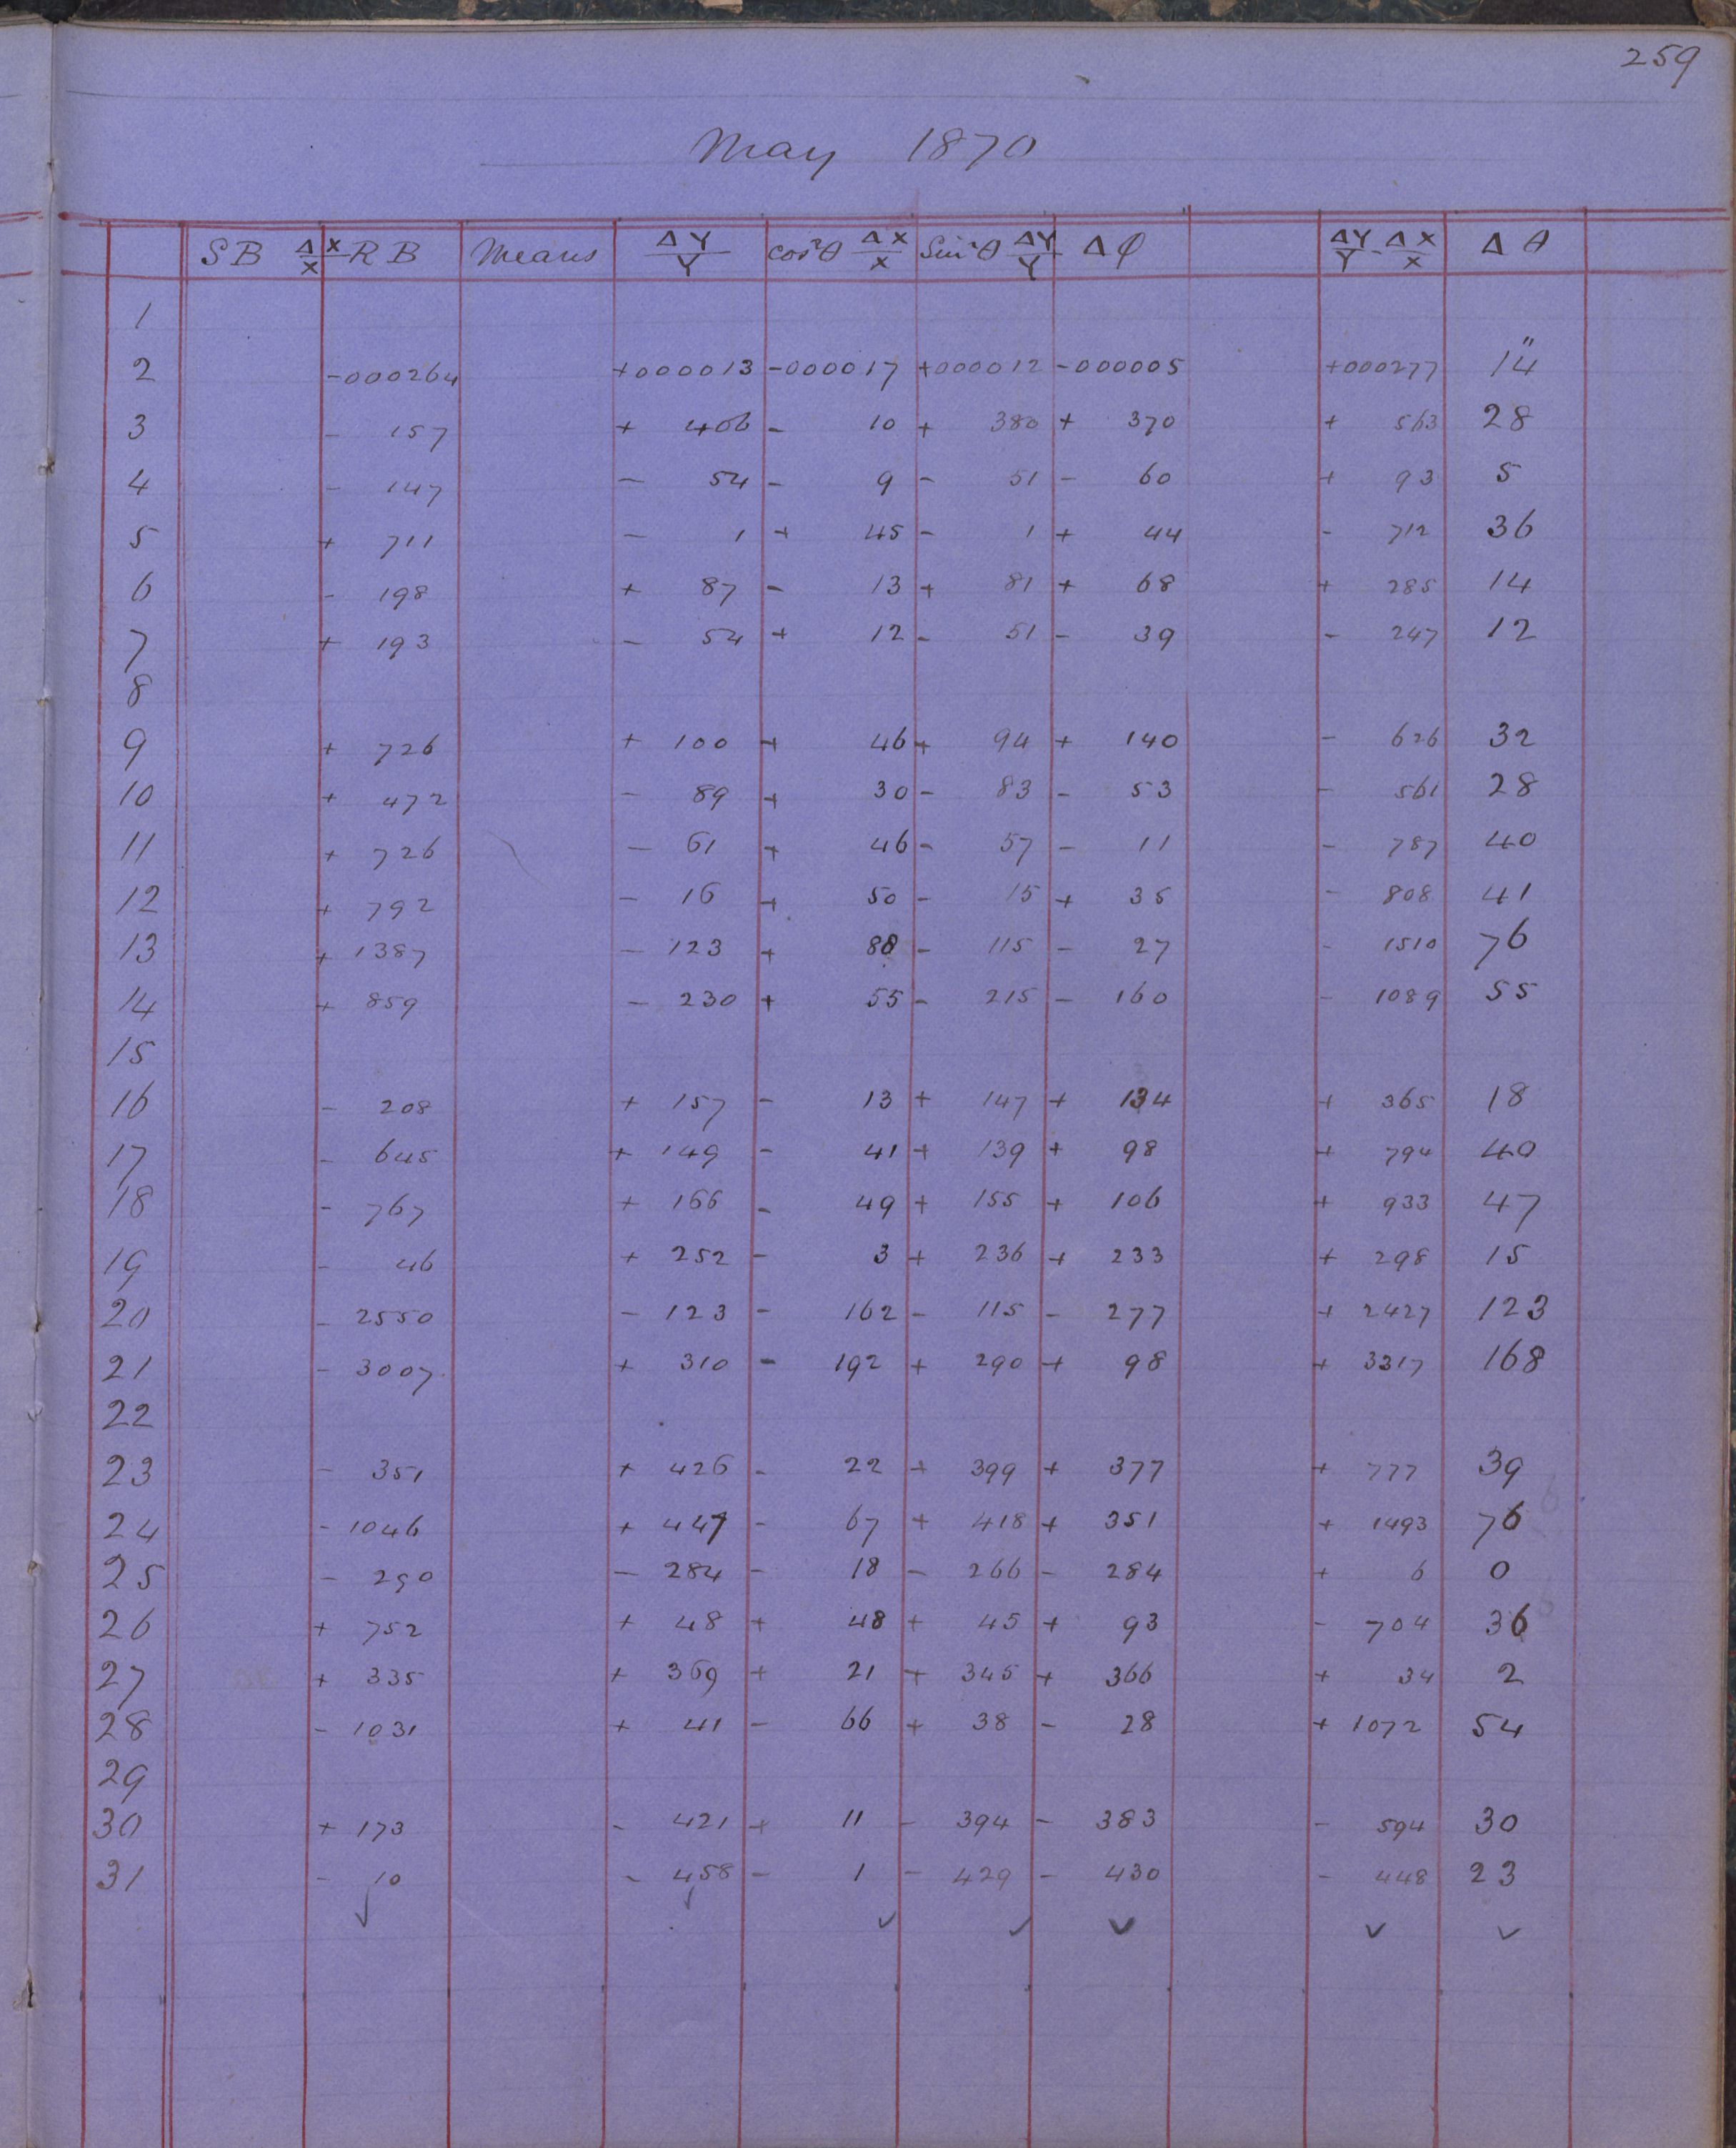 259
May 1870
SB ΔX/X RB Means ΔY/Y cos²θ ΔX/X Sin²θ ΔY/Y Δφ ΔY/Y - ΔX/X Δθ
1
2 -000264 +000013 -000017 +000012 -000005 +000277 14"
3 - 157 + 406 - 10 + 380 + 370 + 563 28
4 - 147 - 54 - 9 - 51 - 60 + 93 5
5 + 711 - 1 + 45 - 1 + 44 - 712 36
6 - 198 + 87 - 13 + 81 + 68 + 285 14
7 + 193 - 54 + 12 - 51 - 39 - 247 12
8
9 + 726 + 100 + 46 + 94 + 140 - 626 32
10 + 472 - 89 + 30 - 83 - 53 - 561 28
11 + 726 - 61 + 46 - 57 - 11 - 787 40
12 + 792 - 16 + 50 - 15 + 35 - 808 41
13 + 1387 - 123 + 88 - 115 - 27 - 1510 76
14 + 859 - 230 + 55 - 215 - 160 - 1089 55
15
16 - 208 + 157 - 13 + 147 + 134 + 365 18
17 - 645 + 149 - 41 + 139 + 98 + 794 40
18 - 767 + 166 - 49 + 155 + 106 + 933 47
19 - 46 + 252 - 3 + 236 + 233 + 298 15
20 - 2550 - 123 - 162 - 115 - 277 + 2427 123
21 - 3007 + 310 - 192 + 290 + 98 + 3317 168
22
23 - 351 + 426 - 22 + 399 + 377 + 777 39
24 - 1046 + 447 - 67 + 418 + 351 + 1493 76
25 - 290 - 284 - 18 - 266 - 284 + 6 0
26 + 752 + 48 + 48 + 45 + 93 - 704 36
27 + 335 + 369 + 21 + 345 + 366 + 34 2
28 - 1031 + 41 - 66 + 38 - 28 + 1072 54
29
30 + 173 - 421 + 11 - 394 - 383 - 594 30
31 - 10 - 458 - 1 - 429 - 430 - 448 23
✓ ✓ ✓ ✓ ✓ ✓ ✓